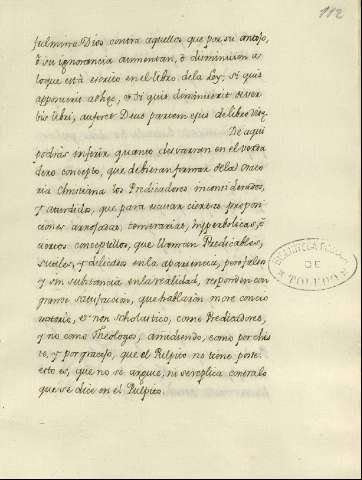 112
fulmina Dios contra aquellos que por su antojo,
ò su ignorancia aumentan, ò disminuien a
lo que està escrito en el libro de la Ley; si quis
apposuerit ad hęc, et si quis diminuerit de ver
bis libri, auferet Deus partem ejus de libro vitę.
De aqui
podràs inferir quanto desvarran en el verda
dero concepto, que debieran formar de la Orato
ria Christiana los Predicadores
y atrevidos, que para escusar ciertas proposi
ciones arrojadas, temerarias, hyperbolicas, ò
ciertos conceptillos, que llaman Predicables,
sutiles, y delicados en la apariencia, pero falsos
y sin substancia en la realidad, responden con
grande satisfaccion, que hablaron more concio
natorio, et non scholastico, como Predicadores,
y no como Theologos, añadiendo, como por chis
te, y por gracejo, que el Pulpito no tiene poste:
esto es, que no se arguie, ni se replica contra lo
que se dice en el Pulpito.
BIBLIOTECA PUBLICA
DE
TOLEDO